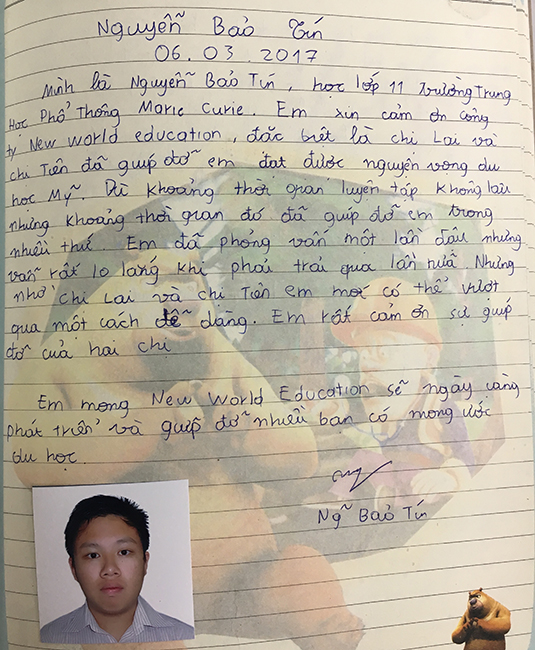 Nguyễn Bảo Tín
06.03.2017
Mình là Nguyễn Bảo Tín, học lớp 11 Trường Trung
Học Phổ Thông Marie Curie. Em xin cảm ơn công
ty New World education, đặc biệt là chị Lai và
chị Tiên đã giúp đỡ em đạt được nguyện vọng du
học Mỹ. Dù khoảng thời gian luyện tập không lâu
nhưng khoảng thời gian đó đã giúp đỡ em trong
nhiều thứ. Em đã phỏng vấn một lần đầu nhưng
vẫn rất lo lắng khi phải trải qua lần nữa. Nhưng
nhờ chị Lai và chị Tiên em mới có thể vượt
qua một cách dễ dàng. Em rất cảm ơn sự giúp
đỡ của hai chị
Em mong New World Education sẽ ngày càng
phát triển và giúp đỡ nhiều bạn có mong ước
du học.
Ng Bảo Tín